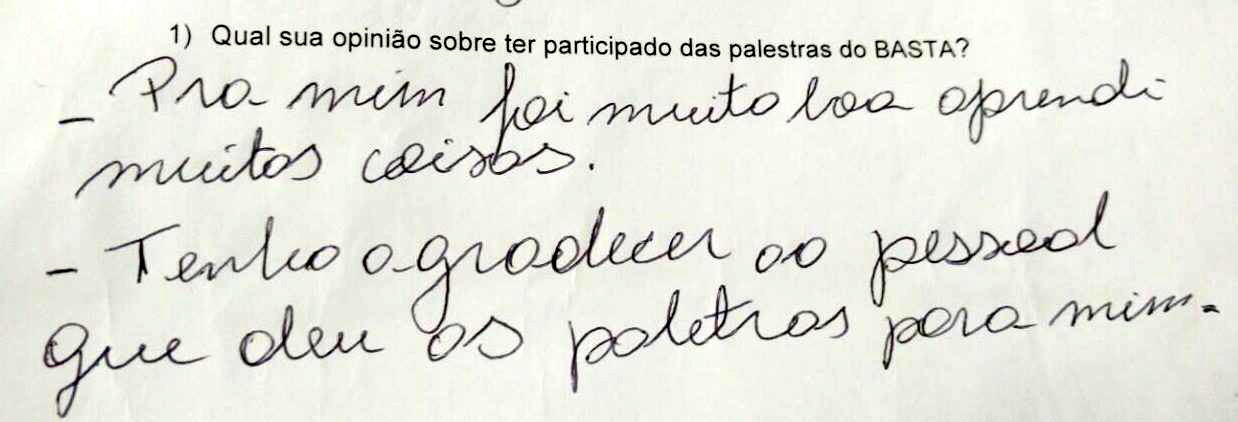 1) Qual sua opinião sobre ter participado das palestras do BASTA?
- Pra mim foi muito boa aprendi
muitas coisas.
- Tenho agradecer ao pessoal
que deu as paletras para mim.